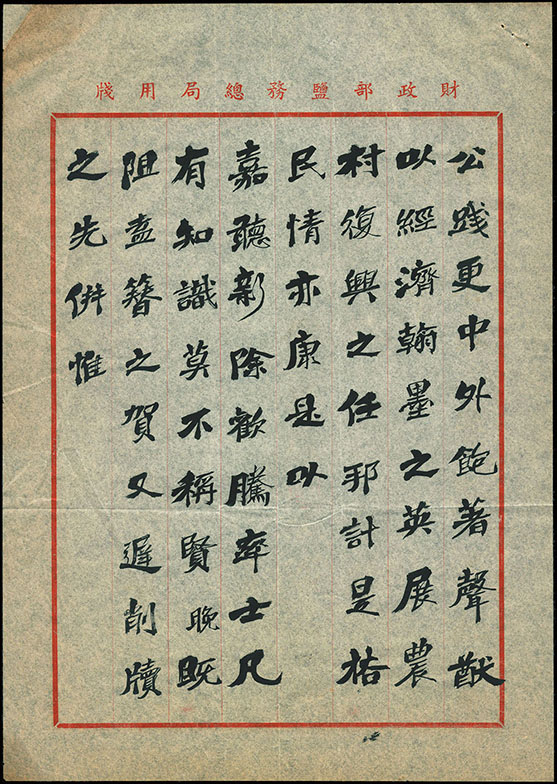 財政部鹽務總局用牋
公踐更中外飽著聲猷
以經濟翰墨之英展農
村復興之任邦計是裕
民情亦康是以
嘉聽新除歡騰率士凡
有知識莫不稱賢晚既
阻盍簪之賀又遲削牘
之先併惟